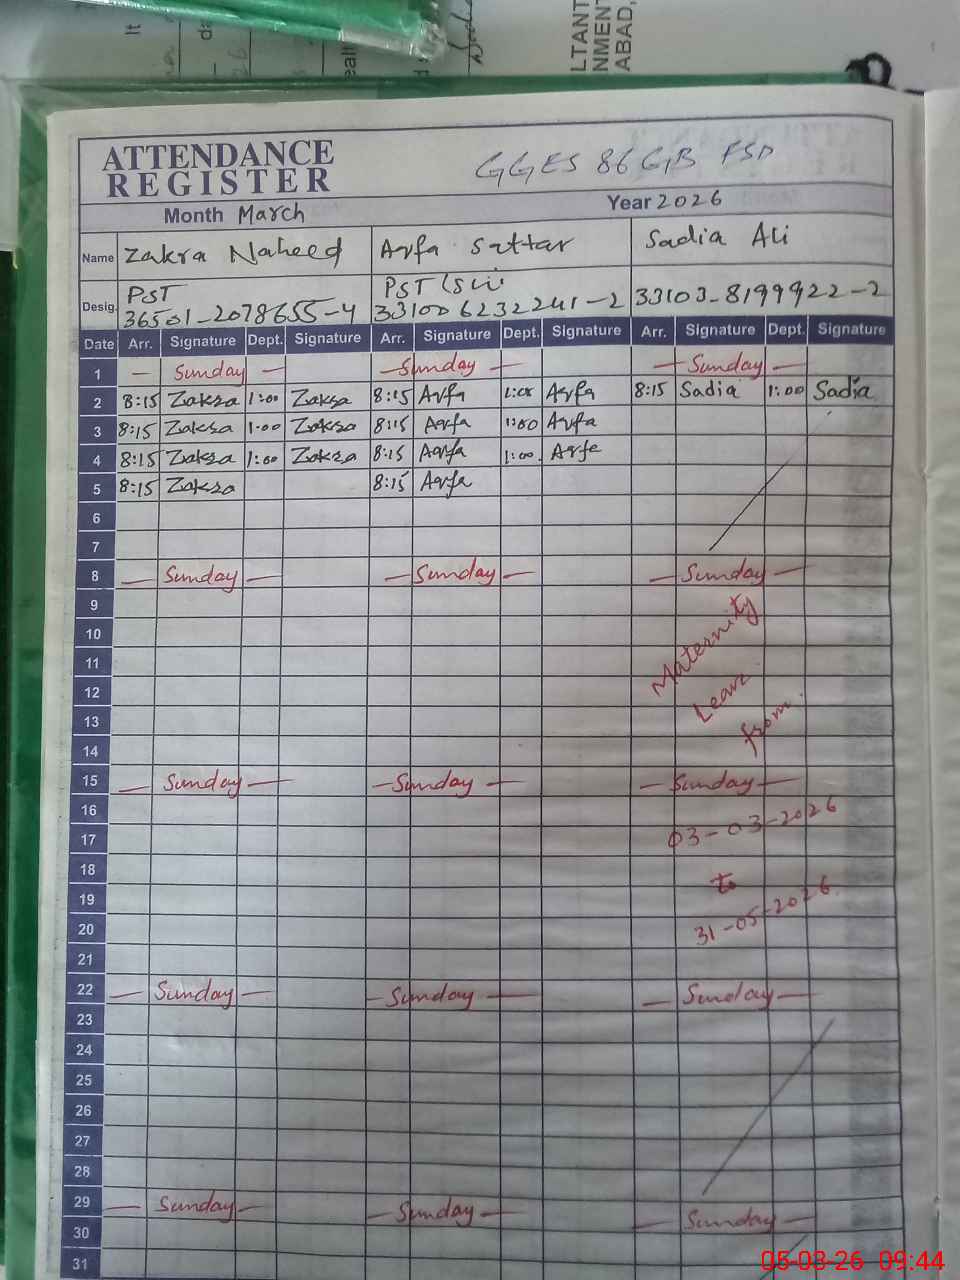 LTANT
NMENT
ABAD,
ATTENDANCE
REGISTER
GGES 86 GB FSD
Month March
Year 2026
Name Zakra Naheed Arfa Sattar Sadia Ali
Desig. PST PST
36501-2078655-4 33100 6232241-2 33103-8199922-2
Date Arr. Signature Dept. Signature Arr. Signature Dept. Signature Arr. Signature Dept. Signature
1 — Sunday — — Sunday — — Sunday —
2 8:15 Zakra 1:00 Zakra 8:15 Arfa 1:00 Arfa 8:15 Sadia 1:00 Sadia
3 8:15 Zakra 1:00 Zakra 8:15 Arfa 1:00 Arfa
4 8:15 Zakra 1:00 Zakra 8:15 Arfa 1:00. Arfa
5 8:15 Zakra 8:15 Arfa
6
7
8 — Sunday — — Sunday — — Sunday —
9
10
11
12
13
14
Maternity
Leave
from
15 — Sunday — — Sunday — — Sunday —
16
17 03-03-2026
18
19 to
20 31-05-2026
21
22 — Sunday — — Sunday — — Sunday —
23
24
25
26
27
28
29 — Sunday — — Sunday — — Sunday —
30
31
05-03-26 09:44